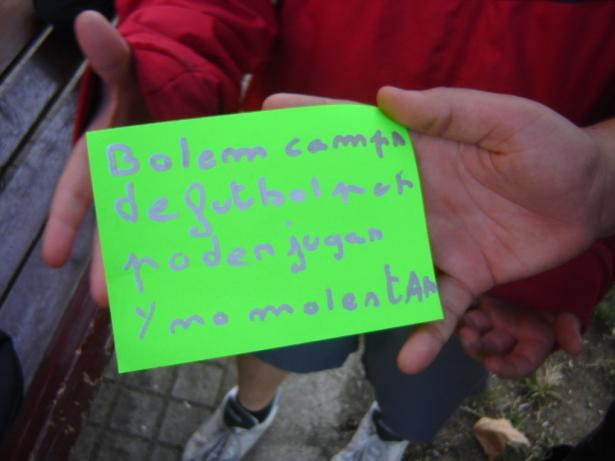 Bolem camps
de futbol per
poder jugar
Y no molentAr